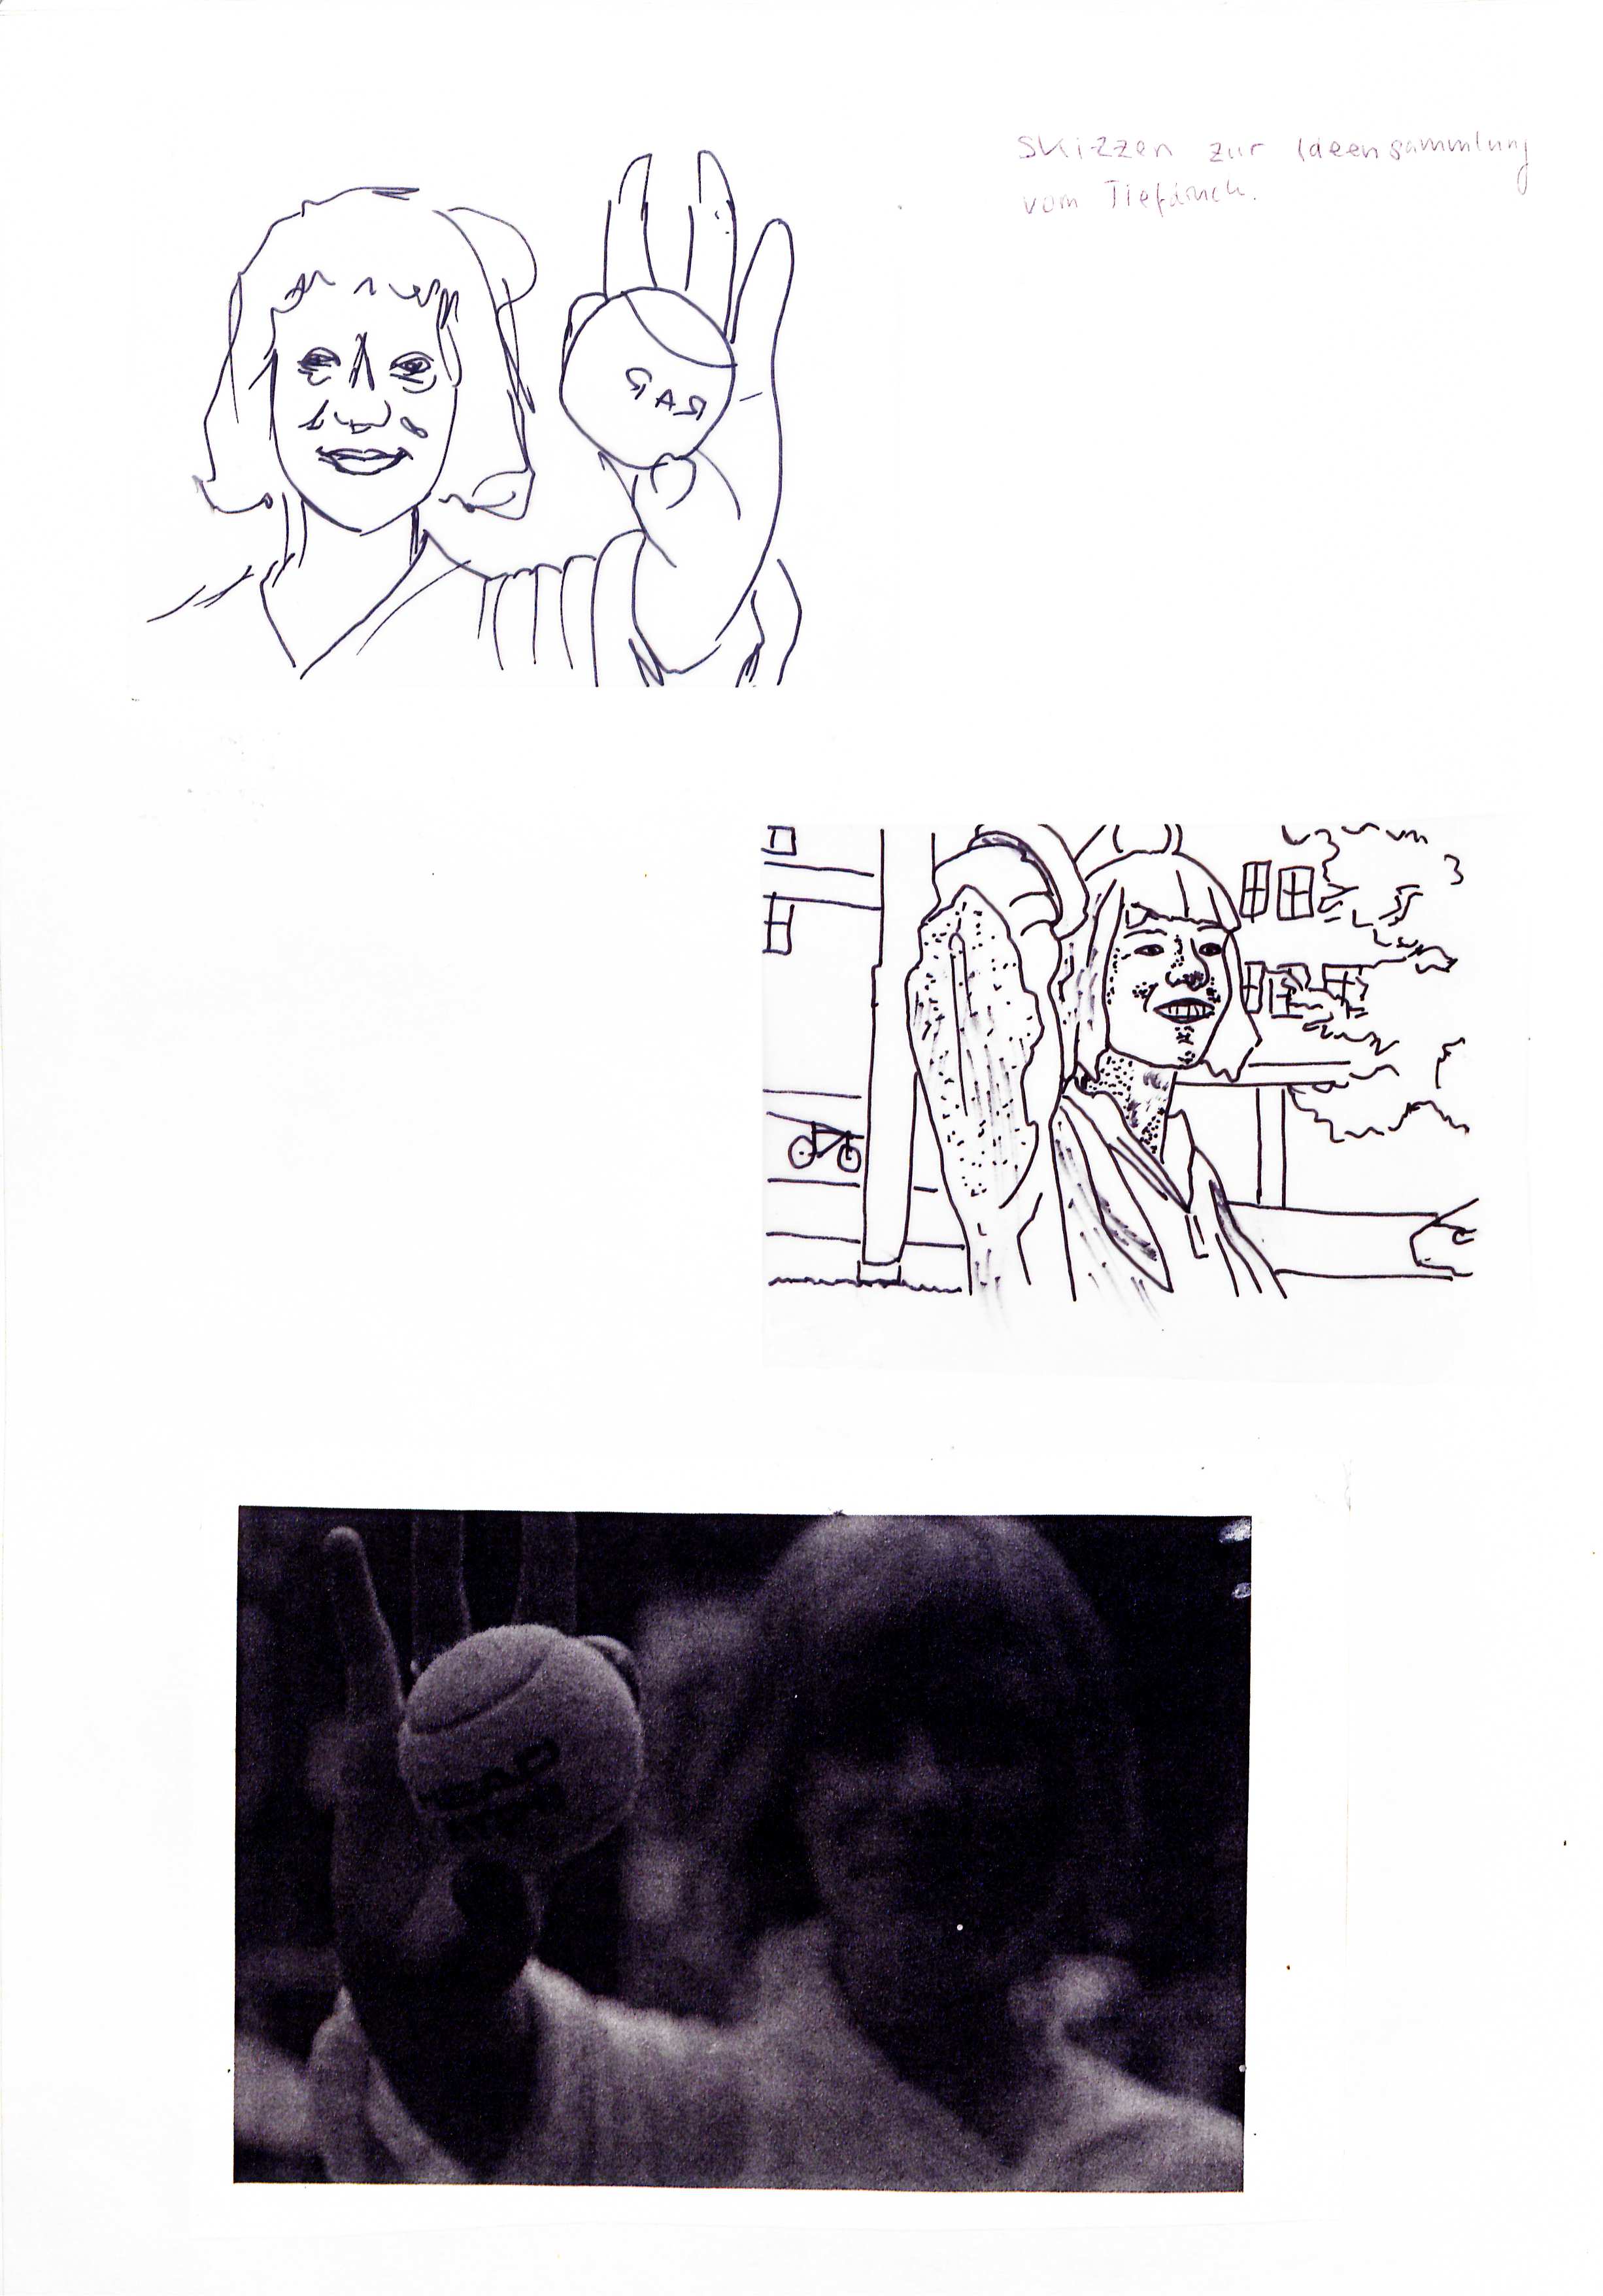 Skizzen zur Ideensammlung
vom Tiefdruck.
HEAD